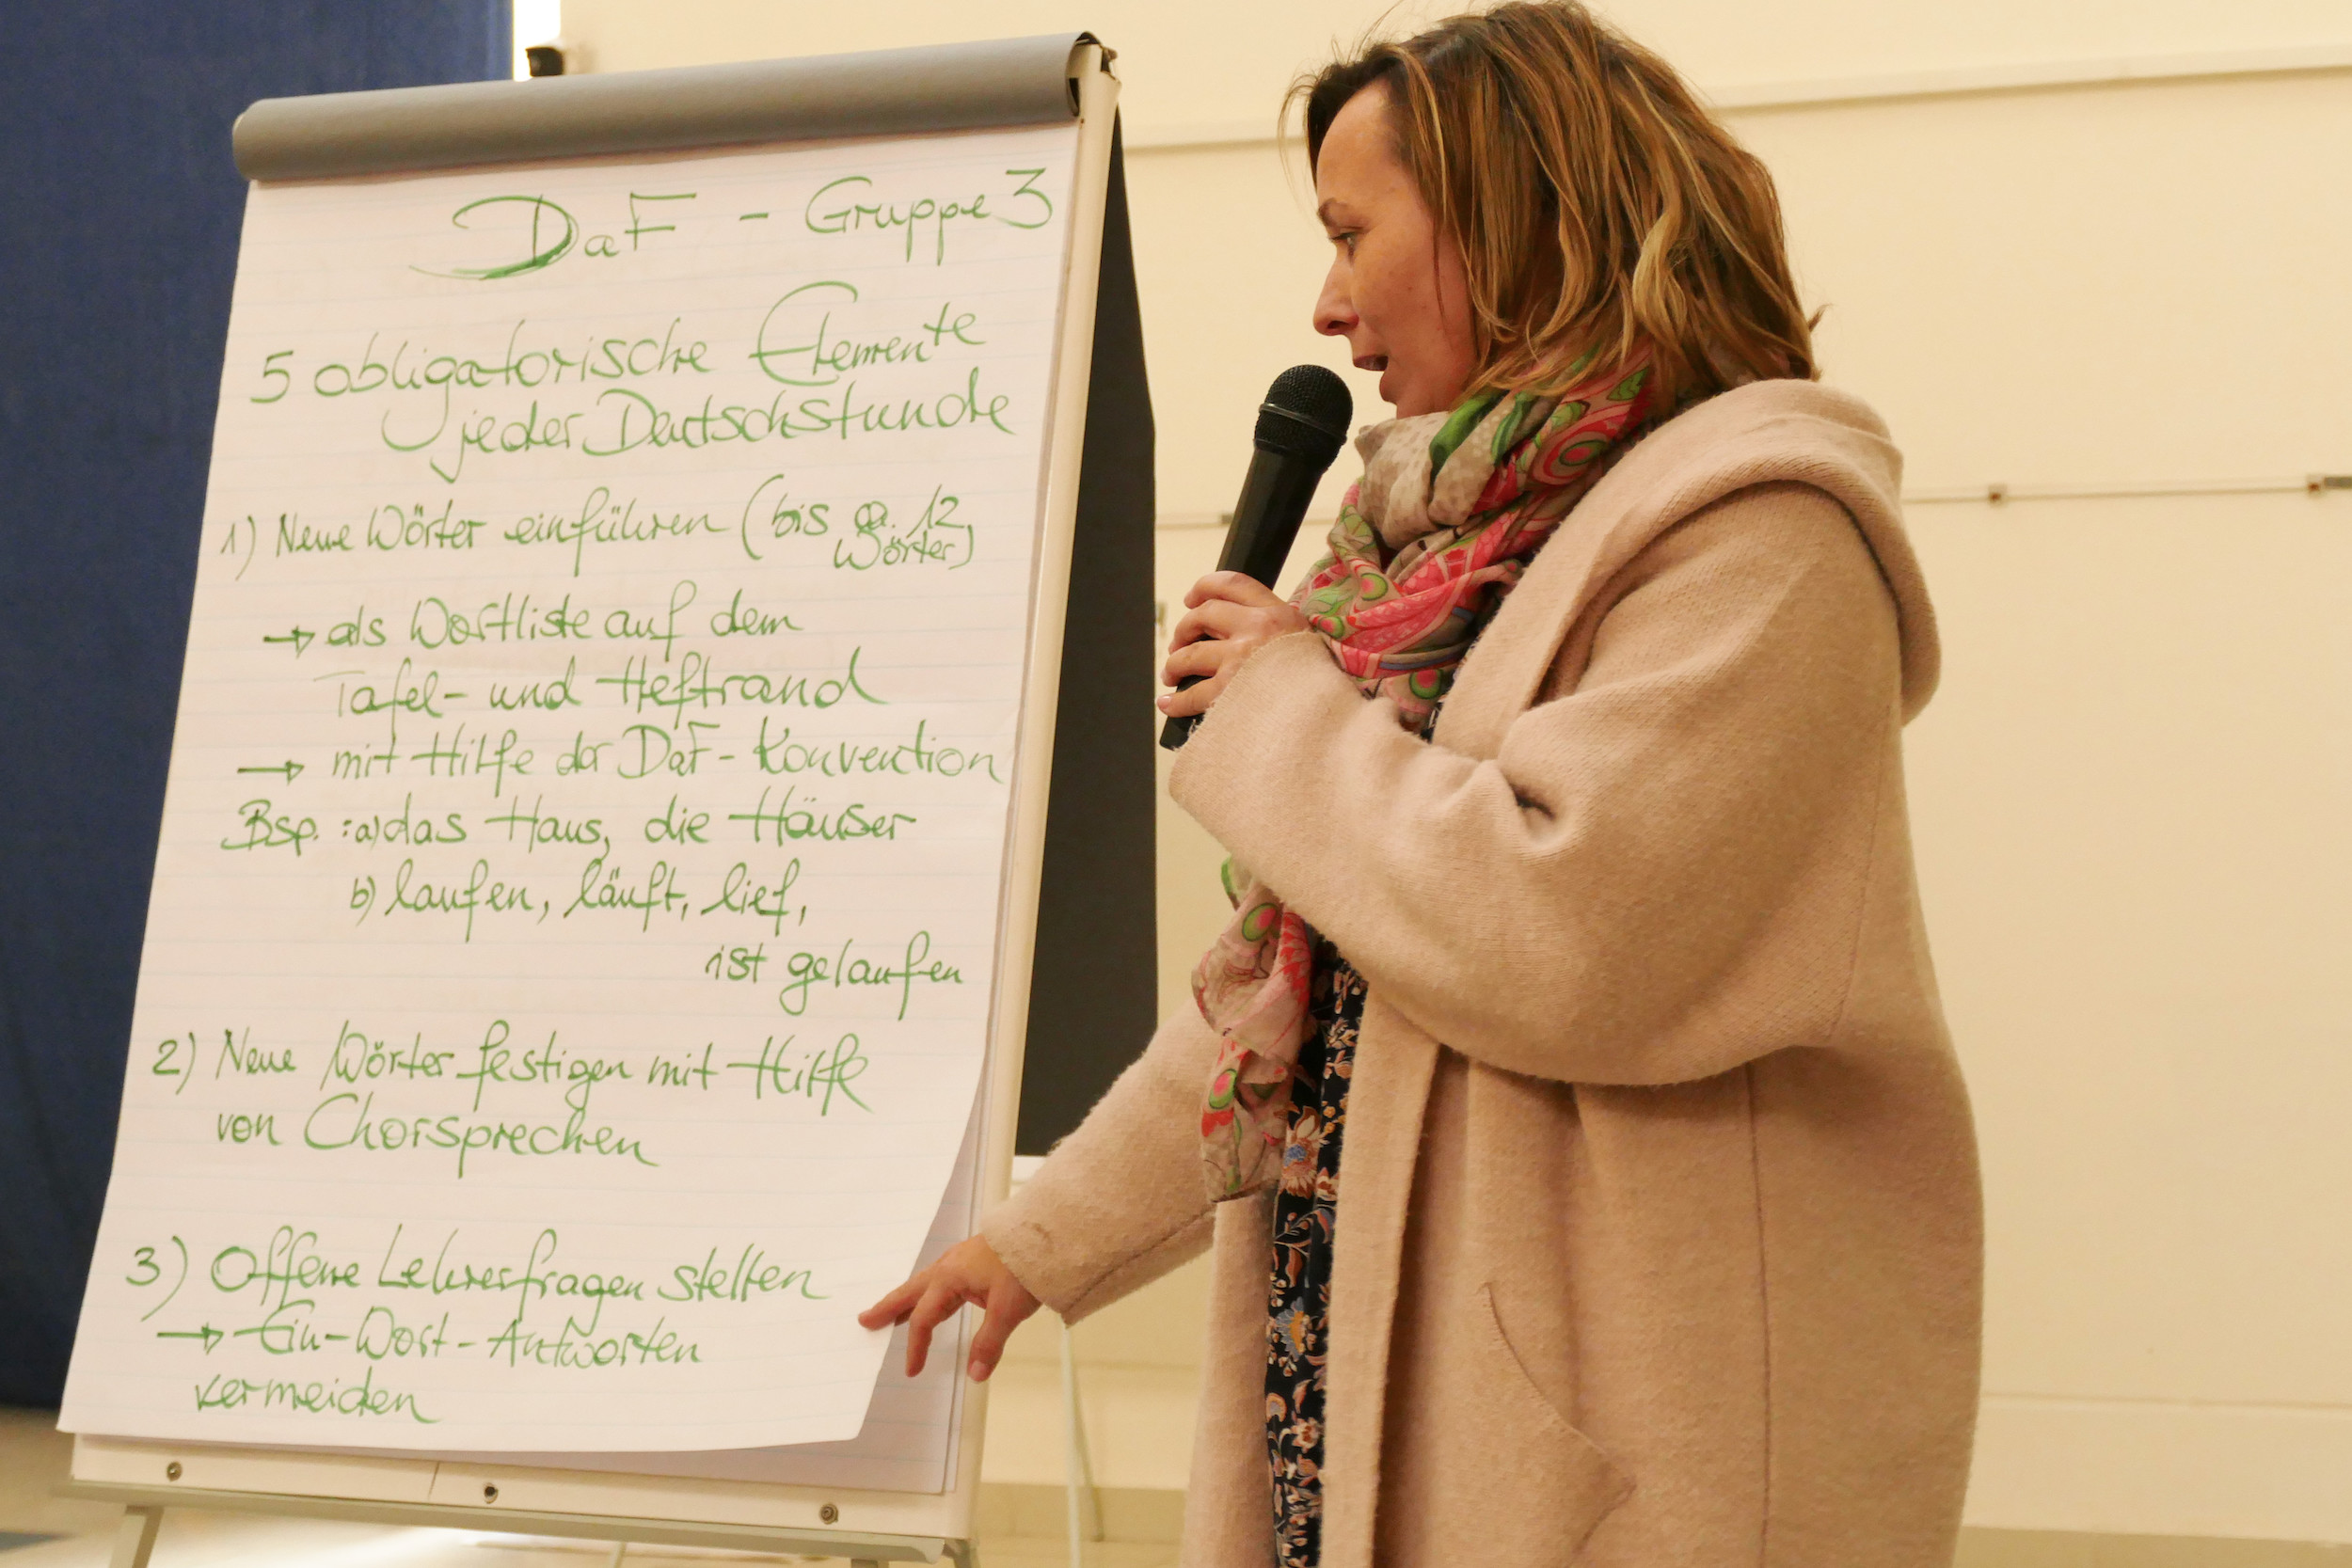 DaF - Gruppe 3
5 obligatorische Elemente
jeder Deutschstunde
1) Neue Wörter einführen (bis ca. 12
Wörter)
→ als Wortliste auf dem
Tafel- und Heftrand
→ mit Hilfe der DaF-Konvention
Bsp.: a) das Haus, die Häuser
b) laufen, läuft, lief,
ist gelaufen
2) Neue Wörter festigen mit Hilfe
von Chorsprechen
3) Offene Lehrerfragen stellen
→ Ein-Wort-Antworten
vermeiden